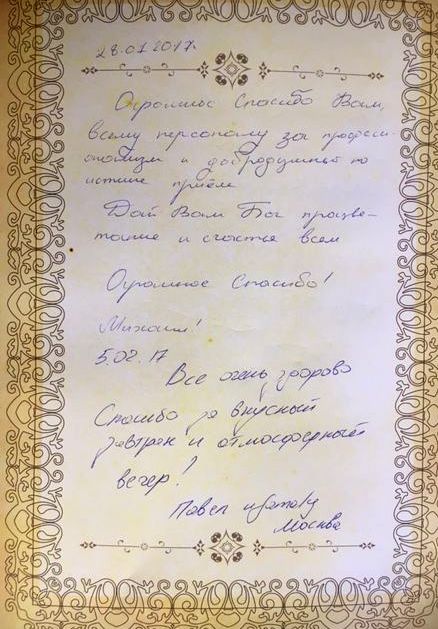 28.01.2017г.
Огромное Спасибо Вам,
всему персоналу за професси-
онализм и добродушный по
истине приём
Дай Вам Бог процве-
тание и счастье всем
Огромное Спасибо!
Михаил!
5.02.17
Все очень здорово
Спасибо за вкусный
завтрак и атмосферный
вечер!
Павел
Москва